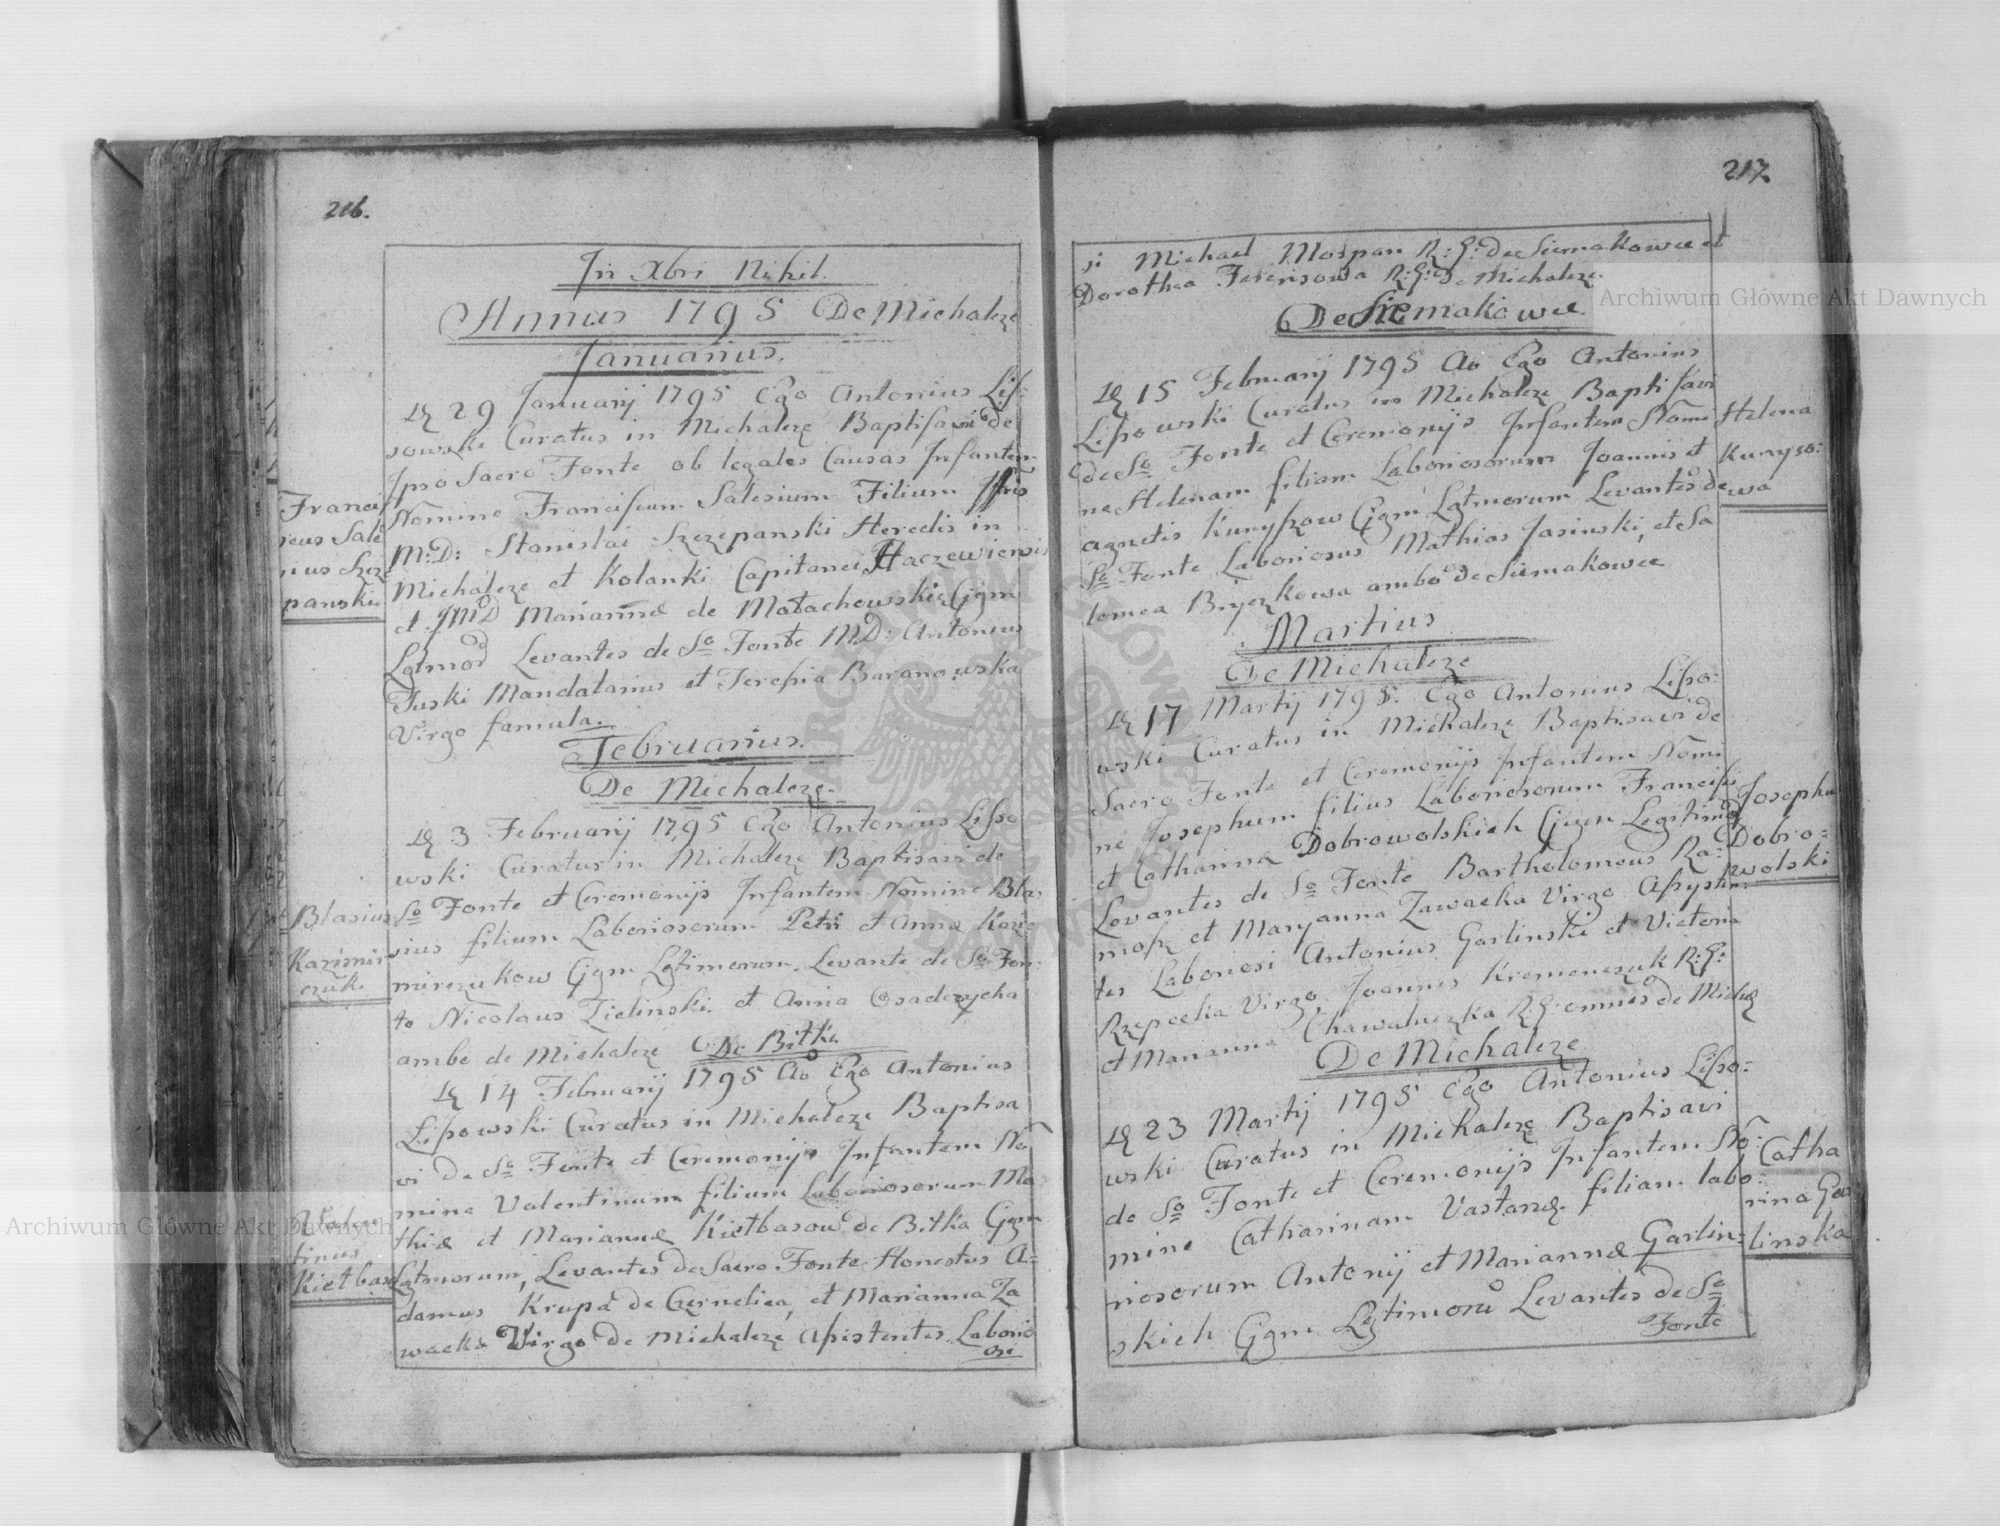 216.
In Xbri Nihil.
Annus 1795 De Michalcze
Januarius.
29 Januarij 1795 Ego Antonius Lis-
sowski Curatus in Michalcze Baptisavi de
Ipso Sacro Fonte ob legales Causas Infantem
Nomine Franciscum Salesium Filium
M: D: Stanislai Szczepanski Heredis in
Michalcze et Kolanki Capitanei
et Mariannæ de Małachowskie Cjgm
Levantes de So Fonte M.D: Antonius
Tuski Mandatarius et Teresia Baranowska
Virgo famula.
Franci
scus Sale
sius Szcze
panski
Februarius.
De Michalcze.
3 Februarij 1795 Ego Antonius Lisso
wski Curatus in Michalcze Baptisavi de
So Fonte et Ceremonijs Infantem Nomine Bla-
sius filium Laboriosorum Petri et Anna Kazi
mirczukow Cjgm Lgtimorum. Levante de So Fon
te Nicolaus Zielinski et Anna Osadczycha
ambo de Michalcze
Blasius
Kazimir
czuk.
De Bitka
14 Februarij 1795 Ao Ego Antonius
Lissowski Curatus in Michalcze Baptisa
vi de So Fonte et Ceremonijs Infantem No
mine Valentinum filium Laboriosorum Ma
thiæ et Mariannæ Kiełbasow de Bitka Cjgm
Lgtmorum, Levantes de Sacro Fonte Honestus A=
damus Krupa de Czernelica, et Marianna Za
wacka Virgo de Michalcze Assistentes Laborio
si
Valen
tinus
Kiełbasa
217.
si Michael Mospan R: G: de Siemakowce et
Dorothea Ferensowa R: G: de Michalcze.
De Siemakowce.
15 Februarij 1795 Ao Ego Antonius
Lissowski Curatus in Michalcze Baptisavi
de So Fonte et Ceremonijs Infantem Nomi
ne Helenam filiam Laboriosorum Joannis et
Agnetis Cjgm Lgtmorum Levantes de
So Fonte Laboriosus Mathias Jasinski, et Sa
lomea ambo de Siemakowce
Helena
wa
Martius
De Michalcze
17 Martij 1795. Ego Antonius Lisso-
wski Curatus in Michalcze Baptisavi de
Sacro Fonte et Ceremonijs Infantem Nomi
ne Josephum filius Laboriosorum Francisci
et Catharina Dobrowolskich Cjgm Legitimor
Levantes de So Fonte Bartholomeus Ra-
et Maryanna Zawacka Virgo Assysten
tes Laboriosi Antonius Garlinski et Victoria
Rzepecka Virgo, Joannes Kremenczuk R: G:
et Marianna Chawaluczka R: G: omnes de Michcze
Josephu
Dobro=
wolski
De Michalcze
23 Martij 1795 Ego Antonius Lisso-
wski Curatus in Michalcze Baptisavi
de So Fonte et Ceremonijs Infantem No-
mine Catharinam filiam labo
riosorum Antonij et Mariannæ Garlin-
skich Cjgm Lgtimoru Levantes de So
Fonte
Catha
rina Gar
linska
Archiwum Główne Akt Dawnych
Archiwum Główne Akt Dawnych